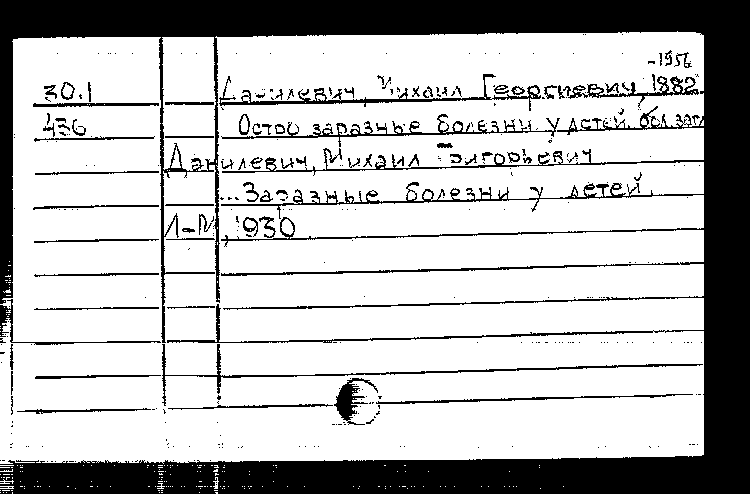 -1956
30.1 Данилевич, Михаил Георгиевич, 1882
436 Остро заразные болезни у детей.
Данилевич, Михаил Григорьевич
...Заразные болезни у детей.
Л-М, 1930